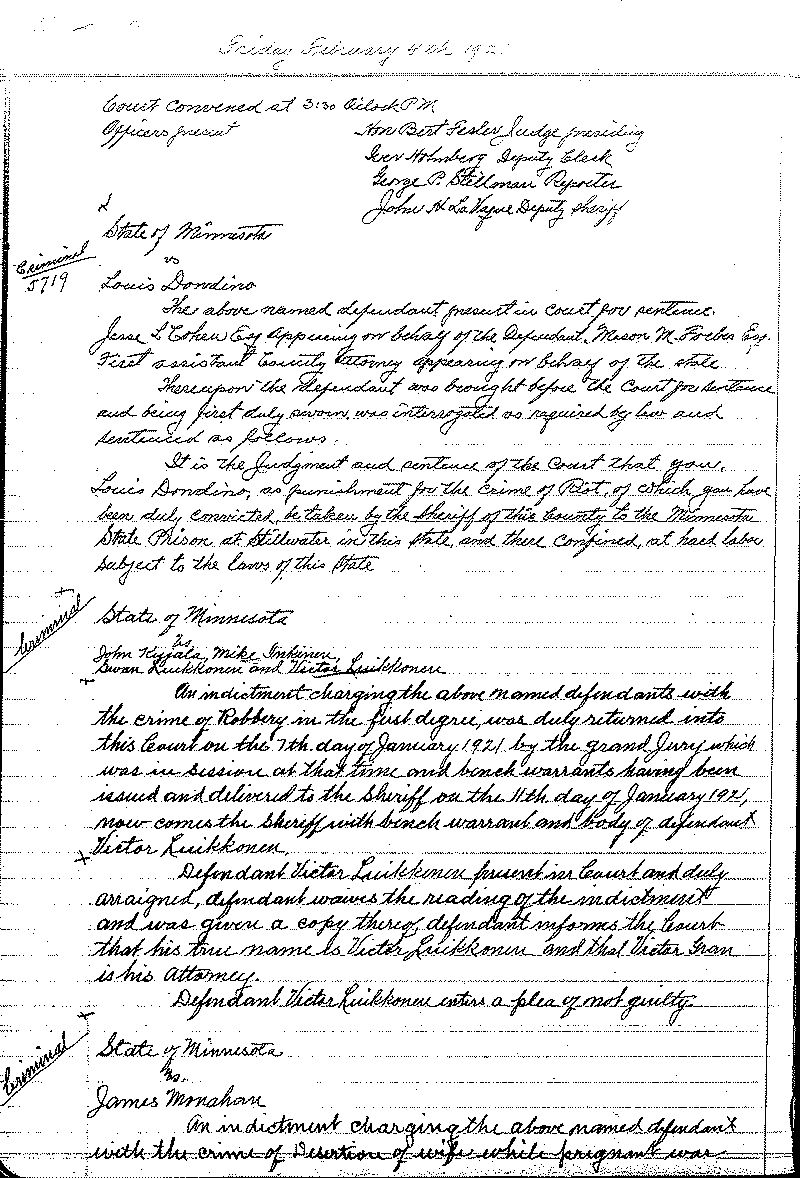 Friday February 4th 192
Court Convened at 3:30 Oclock P.M.
Officers present
Hon Bert Fesler Judge presiding
Iver Holmberg Deputy Clerk
George P. Stillman Reporter
John H La Vaque Deputy Sheriff
State of Minnesota
vs
Criminal
5719
Louis Dondino
The above named defendant present in court for sentence.
Jesse L Cohen Esq appearing on behalf of the Defendant. Mason M. Forbes Esq.
First assistant County Attorney appearing on behalf of the state
Thereupon the defendant was brought before the Court for sentence
and being first duly sworn, was interrogated as required by law and
sentenced as follows.
It is the Judgment and sentence of the Court that you,
Louis Dondino, as punishment for the crime of Riot, of which you have
been duly convicted, be taken by the Sheriff of this County to the Minnesota
State Prison at Stillwater in this state, and there confined, at hard labor
subject to the laws of this State
Criminal
State of Minnesota
vs
John Kujala, Mike Inkinen,
Swan Luikkonen and Victor Luikkonen
An indictment charging the above named defendants with
the crime of Robbery in the first degree, was duly returned into
this Court on the 7th day of January 1921 by the grand Jury which
was in session at that time and bench warrants having been
issued and delivered to the Sheriff on the 11th day of January 1921,
now comes the Sheriff with bench warrant and body of defendant
Victor Luikkonen.
Defendant Victor Luikkonen present in Court and duly
arraigned, defendant waives the reading of the indictment
and was given a copy thereof, defendant informs the Court
that his true name is Victor Luikkonen and that Victor Gran
is his Attorney.
Defendant Victor Luikkonen enters a plea of not guilty.
Criminal
State of Minnesota
vs.
James Monahan
An indictment charging the above named defendant
with the crime of Desertion of wife while pregnant was